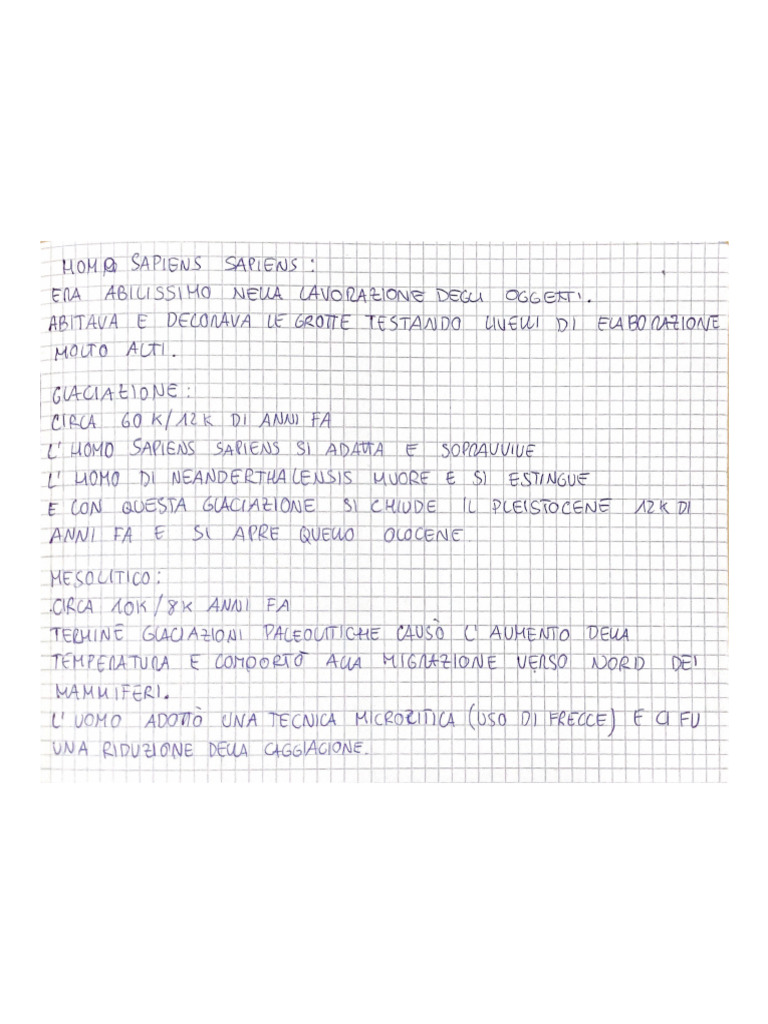 HOMO SAPIENS SAPIENS:
ERA ABILISSIMO NELLA LAVORAZIONE DEGLI OGGETTI.
ABITAVA E DECORAVA LE GROTTE TESTANDO LIVELLI DI ELABORAZIONE
MOLTO ALTI.
GLACIAZIONE:
CIRCA 60K/12K DI ANNI FA
L'HOMO SAPIENS SAPIENS SI ADATTA E SOPRAVVIVE
L'HOMO DI NEANDERTHALENSIS MUORE E SI ESTINGUE
E CON QUESTA GLACIAZIONE SI CHIUDE IL PLEISTOCENE 12K DI
ANNI FA E SI APRE QUELLO OLOCENE.
MESOLITICO:
CIRCA 10K/8K ANNI FA
TERMINE GLACIAZIONI PALEOLITICHE CAUSÒ L'AUMENTO DELLA
TEMPERATURA E COMPORTÒ ALLA MIGRAZIONE VERSO NORD DEI
MAMMIFERI.
L'UOMO ADOTTÒ UNA TECNICA MICROLITICA (USO DI FRECCE) E CI FU
UNA RIDUZIONE DELLA CAGGIAGIONE.